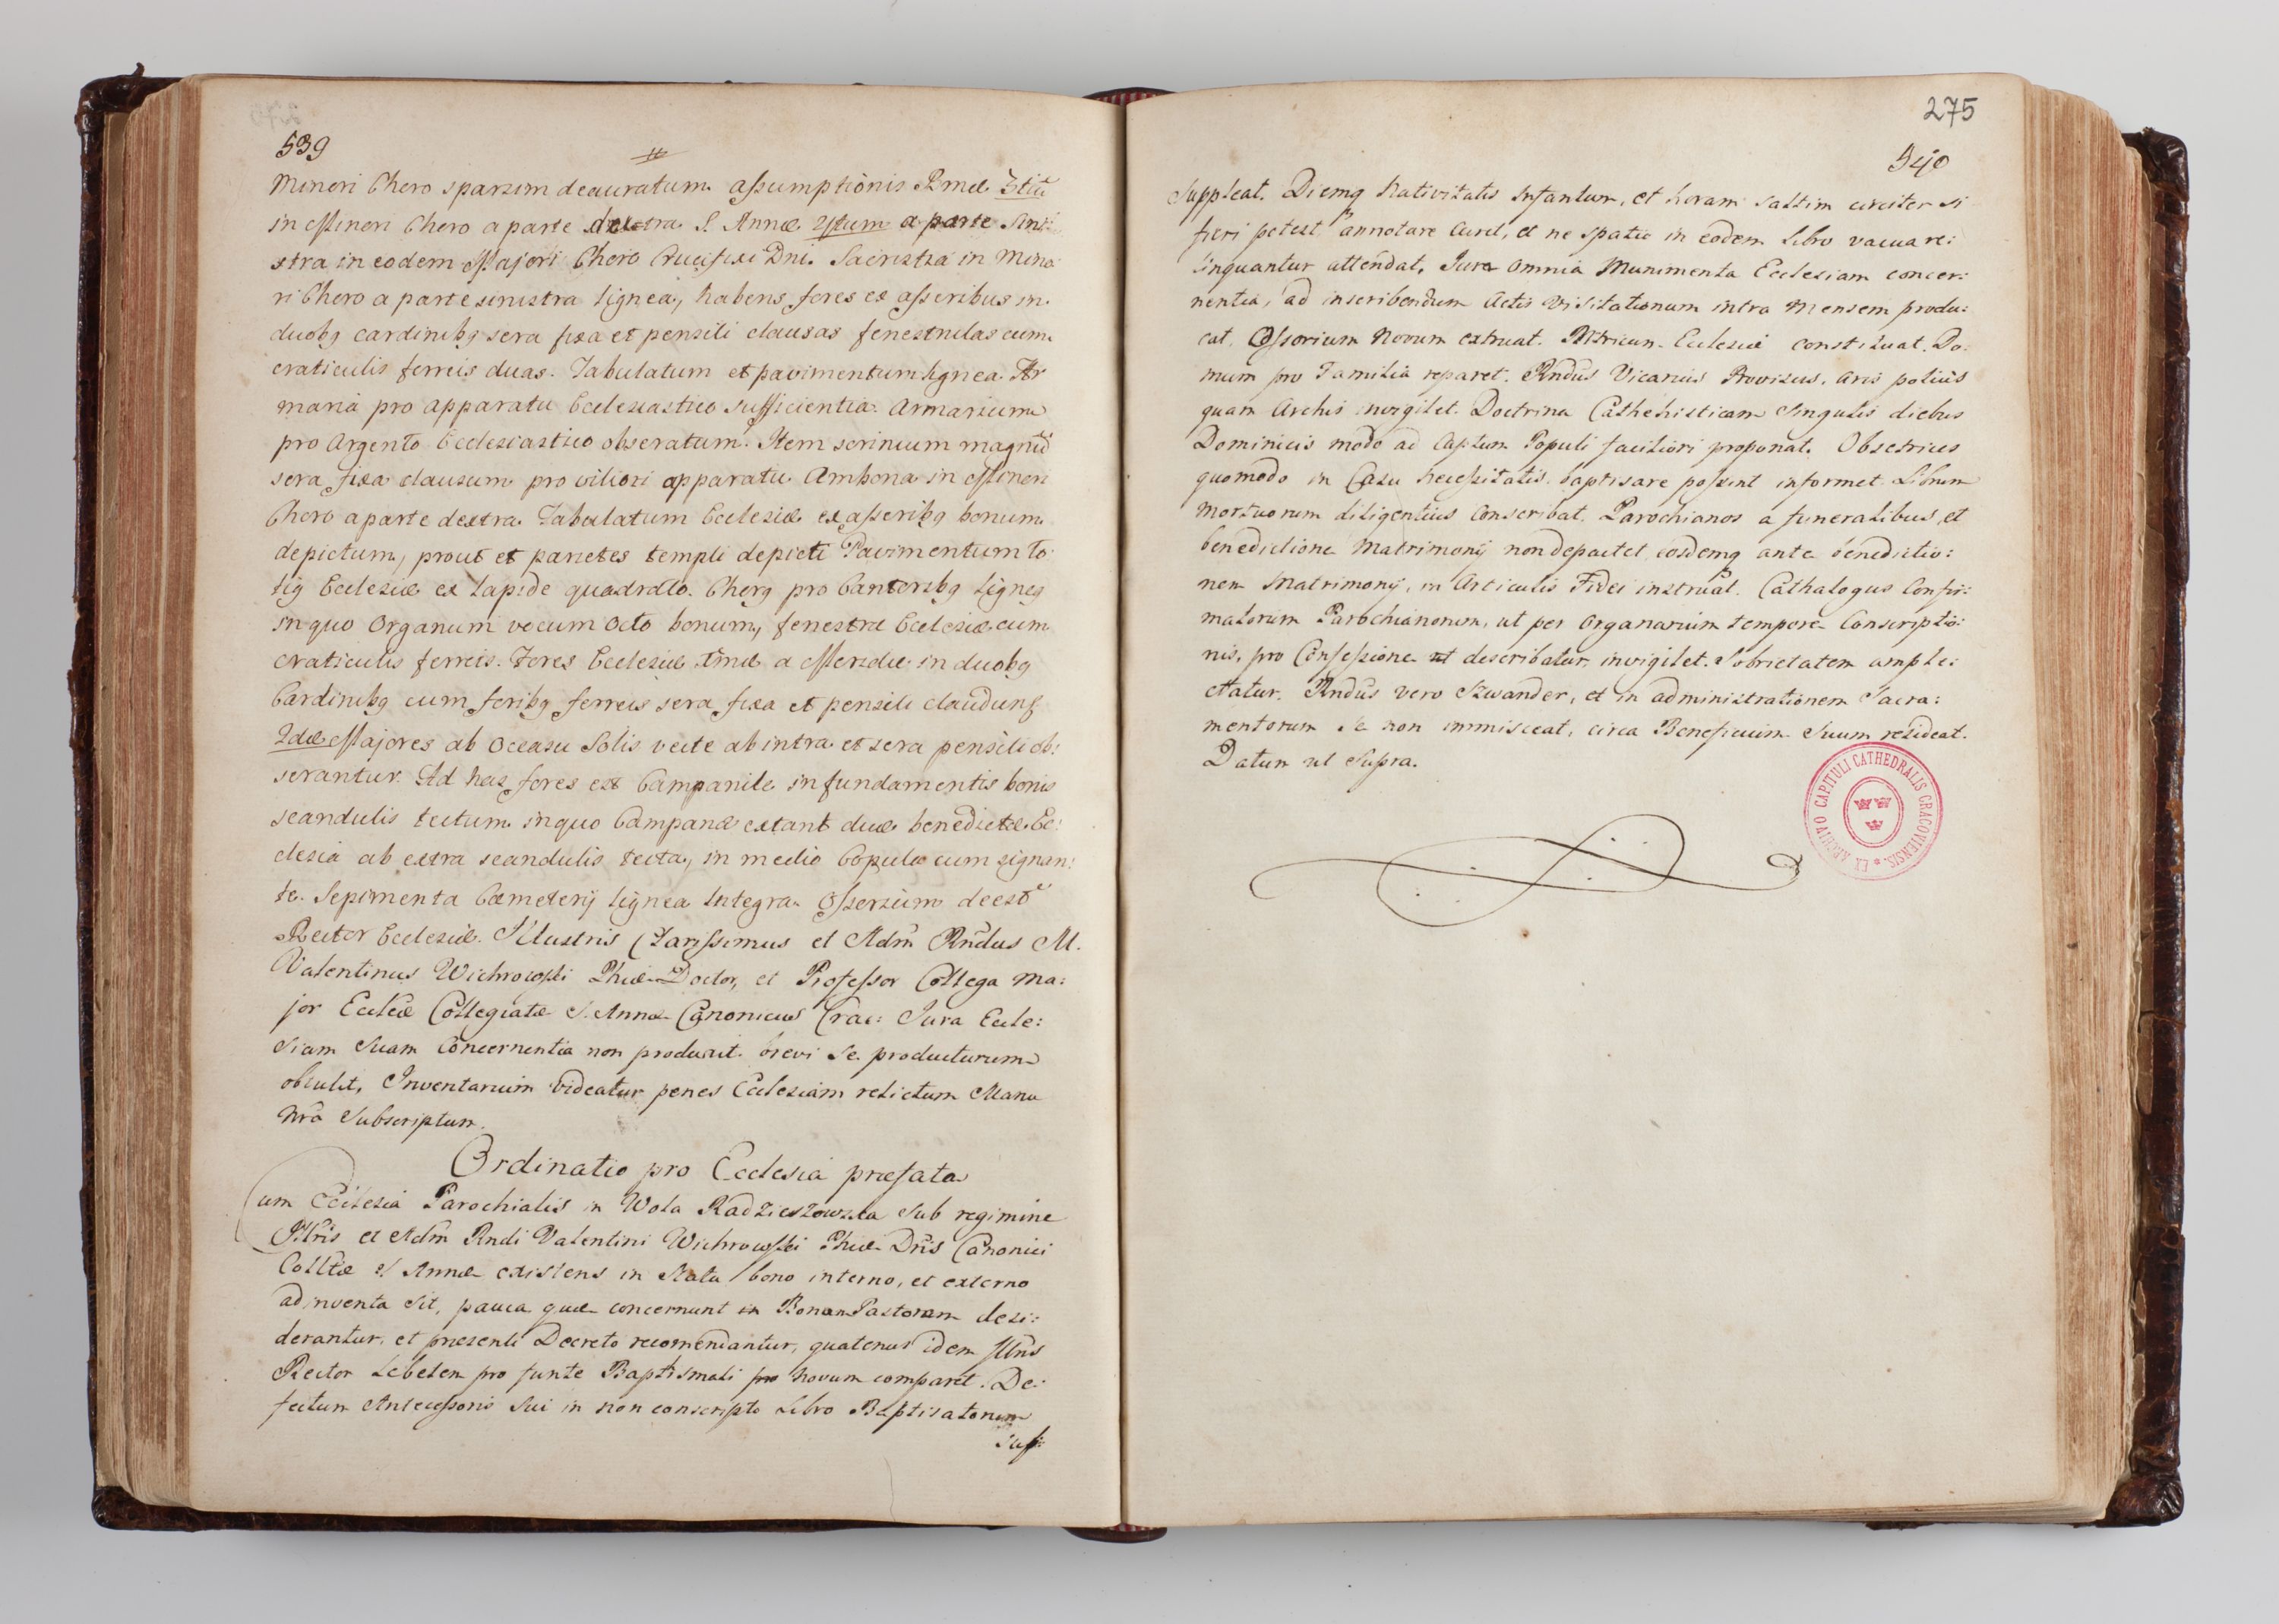 539
Minori Choro sparsim deauratum assumptionis Bmæ 3tiũ
in Minori Choro a parte dextra S. Annæ 4tum a parte Sini
stra in eodem Majori Choro Crucifixi Dni. Sacristia in Mino
ri Choro a parte sinistra lignea, habens fores ex asseribus in
duobq cardinibq sera fixa et pensili clausas fenestrulas cum
craticulis ferreis duas. Tabulatum et pavimentum lignea. Ar
maria pro apparatu Ecclesiastico sufficientia. Armarium
pro Argento Ecclesiastico obseratum. Item scrinium magnũ
sera fixa clausum pro viliori apparatu Ambona in Minori
Choro a parte dextra. Tabulatum Ecclesiæ ex asseribq bonum
depictum, prout et parietes templi depicti Pavimentum to
tiq Ecclesiæ ex lapide quadrato. Chorq pro Cantoribq ligneq
in quo Organum vocum octo bonum, fenestræ Ecclesiæ cum
craticulis ferreis. Fores Ecclesiæ 1mæ a Meridie in duobq
Cardinibq cum foribq ferreis sera fixa et pensili claudunq
2dæ Majores ab occasu Solis vecte ab intra et sera pensili ob:
serantur. Ad has fores est Campanile in fundamentis bonis
scandulis tectum in quo Campanæ extant duæ benedictæ Ec:
clesia ab extra scandulis tecta, in medio Copula cum signan:
te. Sepimenta Cæmeterij lignea integra. Osserium deest
Rector Ecclesiæ. Illustris Clarissimus et Adm̃ Rñdus M.
Valentinus Wichrowski Phiæ Doctor, et Professor Collega Ma:
jor Ecclæ Collegiatæ S. Annæ Canonicus Crac: Jura Eccle:
siam Suam Concernentia non produxit. brevi se producturum
obtulit, Inventarium videatur penes Ecclesiam relictum Manu
Nrã Subscriptum.
Ordinatio pro Ecclesia præfata
Cum Ecclesia Parochialis in Wola Radzieszowska sub regimine
Illris et Adm̃ Rndi Valentini Wichrowski Phiæ Dris Canonici
Colltæ S Annæ existens in Statu bono interno, et externo
adinventa sit, pauca quæ concernunt in Bonum Pastorem desi:
derantur, et præsenti Decreto recomendantur, quatenus idem Illris
Rector Lebetem pro funte Baptismali pro novum comparet. De:
fectum Antecessoris Sui in non conscripto Libro Baptisatorum
Sup:
275
540
Suppleat. Diemq Nativitatis Infantum, et horam saltim circiter si
fieri potest, annotare Curet, et ne spatia in eodem Libro vacua re:
linquantur attendat. Jura omnia Munimenta Ecclesiam concer:
nentia, ad inscribendum Actis Visitationum intra Mensem produ:
cat. Ossorium Novum extruat. Vitricum Ecclesiæ constituat. Do:
mum pro Familia reparet. Rñdus Vicarius Provisus, Aris potius
quam Archis invigilet. Doctrina Cathehisticam Singulis diebus
Dominicis modo ad Captum Populi faciliori proponat. Obsetrices
quomodo in Casu Necessitatis baptisare possint informet. Librum
Mortuorum diligentius Conscribat. Parochianos a funeralibus et
benedictione Matrimonij non depactet, eosdemq ante benedictio:
nem Matrimonij, in Articulis Fidei instruat. Cathalogus Confir:
matorum Parochianorum, ut per Organarium tempore Conscriptio:
nis, pro Confessione ut describatur, invigilet. Sobrietatem ample:
ctatur. Rñdus vero Szwander, et in administrationem Sacra:
mentorum se non immisceat, circa Beneficium Suum resideat.
Datum ut Supra.
EX ARCHIVO CAPITULI CATHEDRALIS CRACOVIENSIS